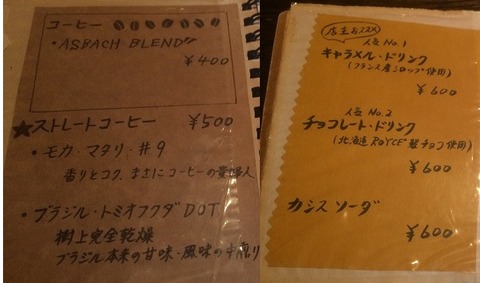 コーヒー
・ASBACH BLEND"
¥400
★ストレートコーヒー ¥500
・モカ・マタリ・#9
香りとコク、まさにコーヒーの貴婦人
・ブラジル・トミオフクダDOT
樹上完全乾燥
ブラジル本来の甘味・風味の中煎り
店主おススメ
人気 No.1
キャラメル・ドリンク
(フランス産シロップ使用)
¥600
人気 No.2
チョコレート・ドリンク
(北海道 ROYCE'製チョコ使用)
¥600
カシス ソーダ
¥600